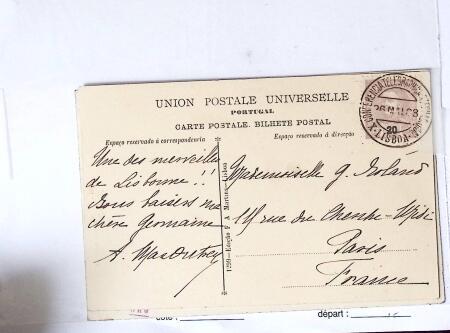 UNION POSTALE UNIVERSELLE
PORTUGAL
CARTE POSTALE. BILHETE POSTAL
Espaço reservado á correspondencia
Espaço reservado á direcção
Une des merveilles
de Lisbonne !!
Bons baisers ma
chère Germaine
A.
1299 - Edição F. A. Martins - Lisboa
Mademoiselle G. Roland
rue du Cherche-Midi
Paris
France
LISBOA
20
départ :